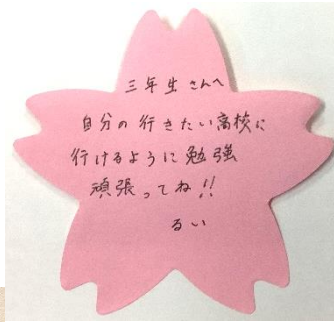 三年生さんへ
自分の行きたい高校に
行けるように勉強
頑張ってね!!
るい